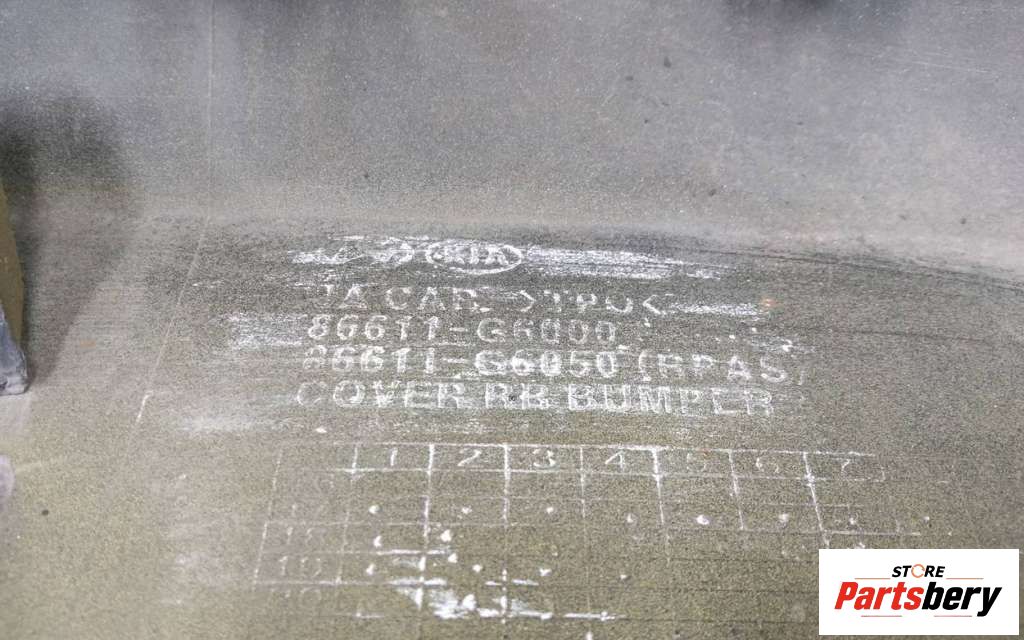 KIA
JA CAR >TPO<
86611-G6000
86611-G6050 (RPAS)
COVER RR BUMPER
1 2 3 4 5 6 7
18
19
STORE
Partsbery